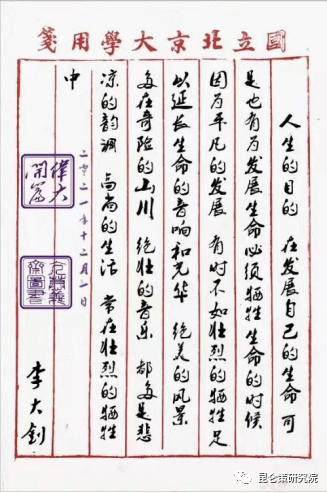 國立北京大學用箋
人生的目的 在发展自己的生命 可
是也有为发展生命必须牺牲生命的时候
因为平凡的发展 有时不如壮烈的牺牲足
以延长生命的音响和光华 绝美的风景
多在奇险的山川 绝壮的音乐 都多是悲
凉的韵调 高尚的生活 常在壮烈的牺牲
中
二零二一年十二月一日
李大钊
昆仑策研究院